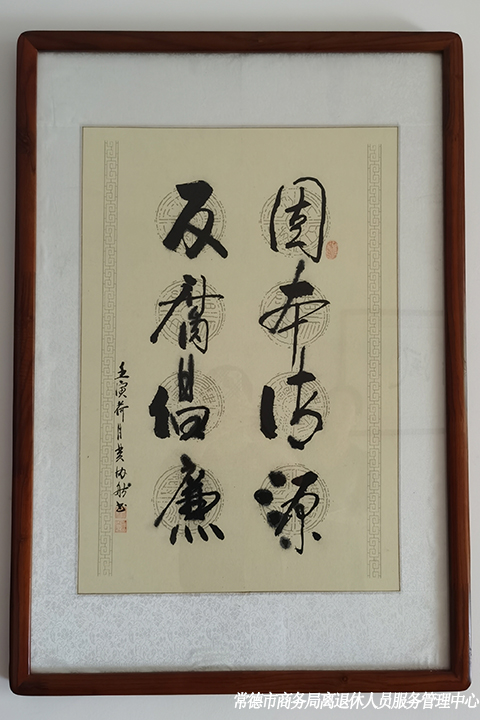 固本清源
反腐倡廉
壬寅荷月
常德市商务局离退休人员服务管理中心